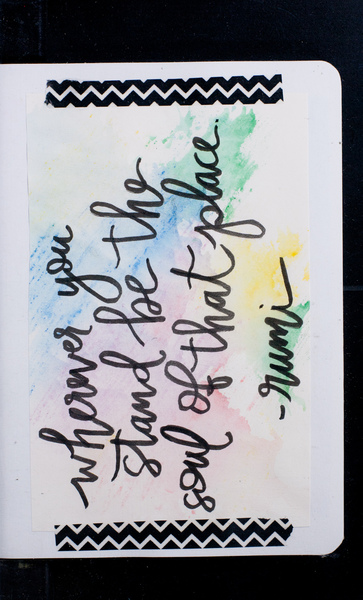 wherever you
stand be the
soul of that place.
- rumi